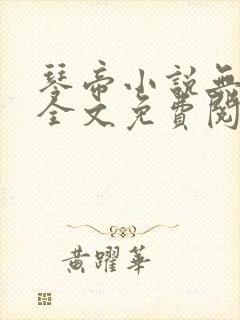 琴帝小說無
全文免費閱
黃躍華